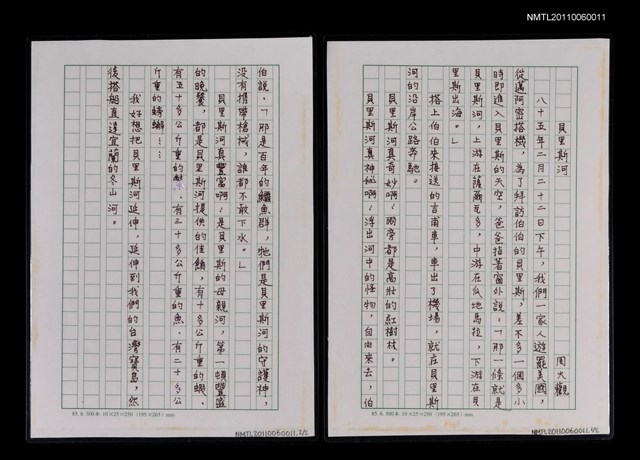 NMTL20110060011
貝里斯河
周大觀
八十五年二月二十二日下午，我們一家人遊罷美國，
從邁阿密搭機，為了拜訪伯伯的貝里斯，差不多一個多小
時即進入貝里斯的天空，爸爸指著窗外說：「那一條就是
貝里斯河，上游在薩爾瓦多，中游在瓜地馬拉，下游在貝
里斯出海。」
搭上伯伯來接送的吉甫車，車出了機場，就在貝里斯
河的沿岸公路奔馳。
貝里斯河真奇妙啊！兩旁都是高壯的紅樹林。
貝里斯河真神秘啊！浮出河中的怪物，自由來去，伯
85. 6. 500本 10×25=250 (195×265) mm
NMTL20110060011.1/2
伯說：「那是百年的鱷魚群，牠們是貝里斯河的守護神，
沒有攜帶槍械，誰都不敢下水。」
貝里斯河真豐富啊！是貝里斯的母親河，第一頓豐盛
的晚餐，都是貝里斯河提供的佳餚，有十多公斤重的蝦、
有五十多公斤重的、有三十多公斤重的魚、有二十多公
斤重的螃蟹……
我好想把貝里斯河延伸，延伸到我們的台灣寶島，然
後搭船直達宜蘭的冬山河。
85. 6. 500本 10×25=250 (195×265) mm
NMTL20110060011.2/2